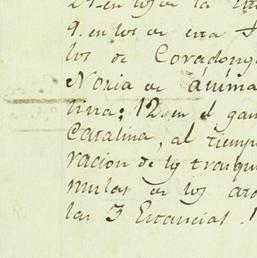 21. en los de la
9. en los de esta
los de Covadong
Noria de ánima
tina; 12. en el gan
Catalina, al tiemp
racion de los tranqu
mulas en los
las 3 Estancias.